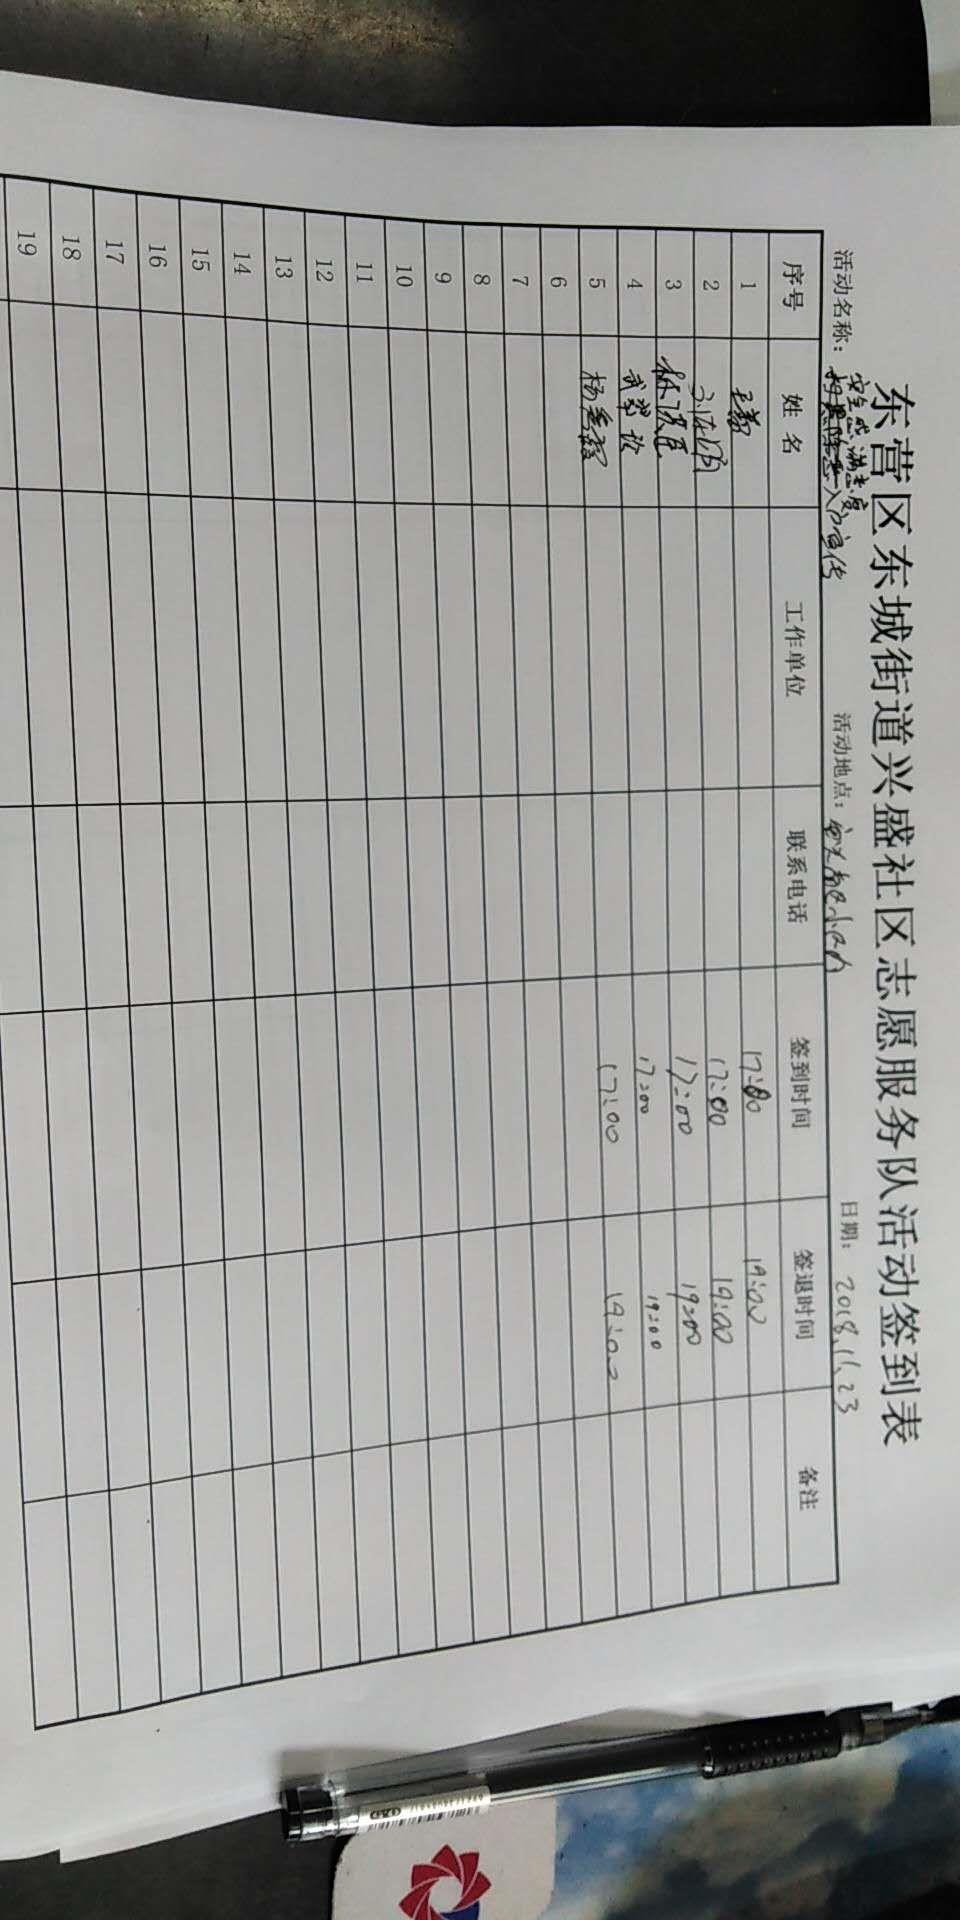 东营区东城街道兴盛社区志愿服务队活动签到表
活动名称: 安全感满意度入户宣传 活动地点: 日期: 2018.11.23
序号 姓名 工作单位 联系电话 签到时间 签退时间 备注
1 17:00 19:00
2 17:00 19:00
3 17:00 19:00
4 武翠 17:00 19:00
5 杨秀 17:00 19:00
6
7
8
9
10
11
12
13
14
15
16
17
18
19